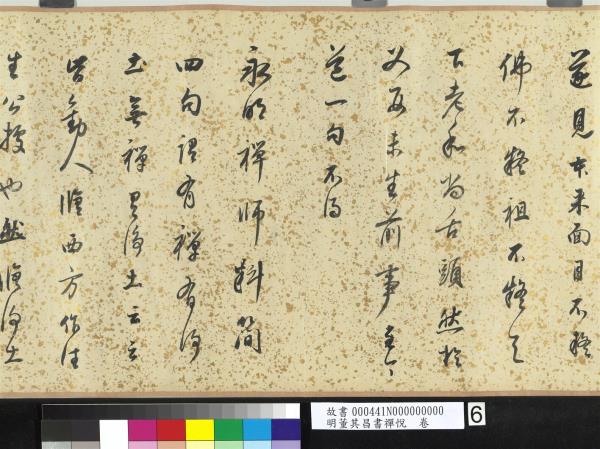 遂見本來面目不疑
佛不疑祖不疑天
下老和尚舌頭然於
父母未生前事至今
道一句不得
永明禪師料簡
四句謂有禪有淨
土無禪淨土云云
皆勸人脩西方作往
生公據也然脩淨土
故書 000441N000000000
明董其昌書禪悅 卷
6